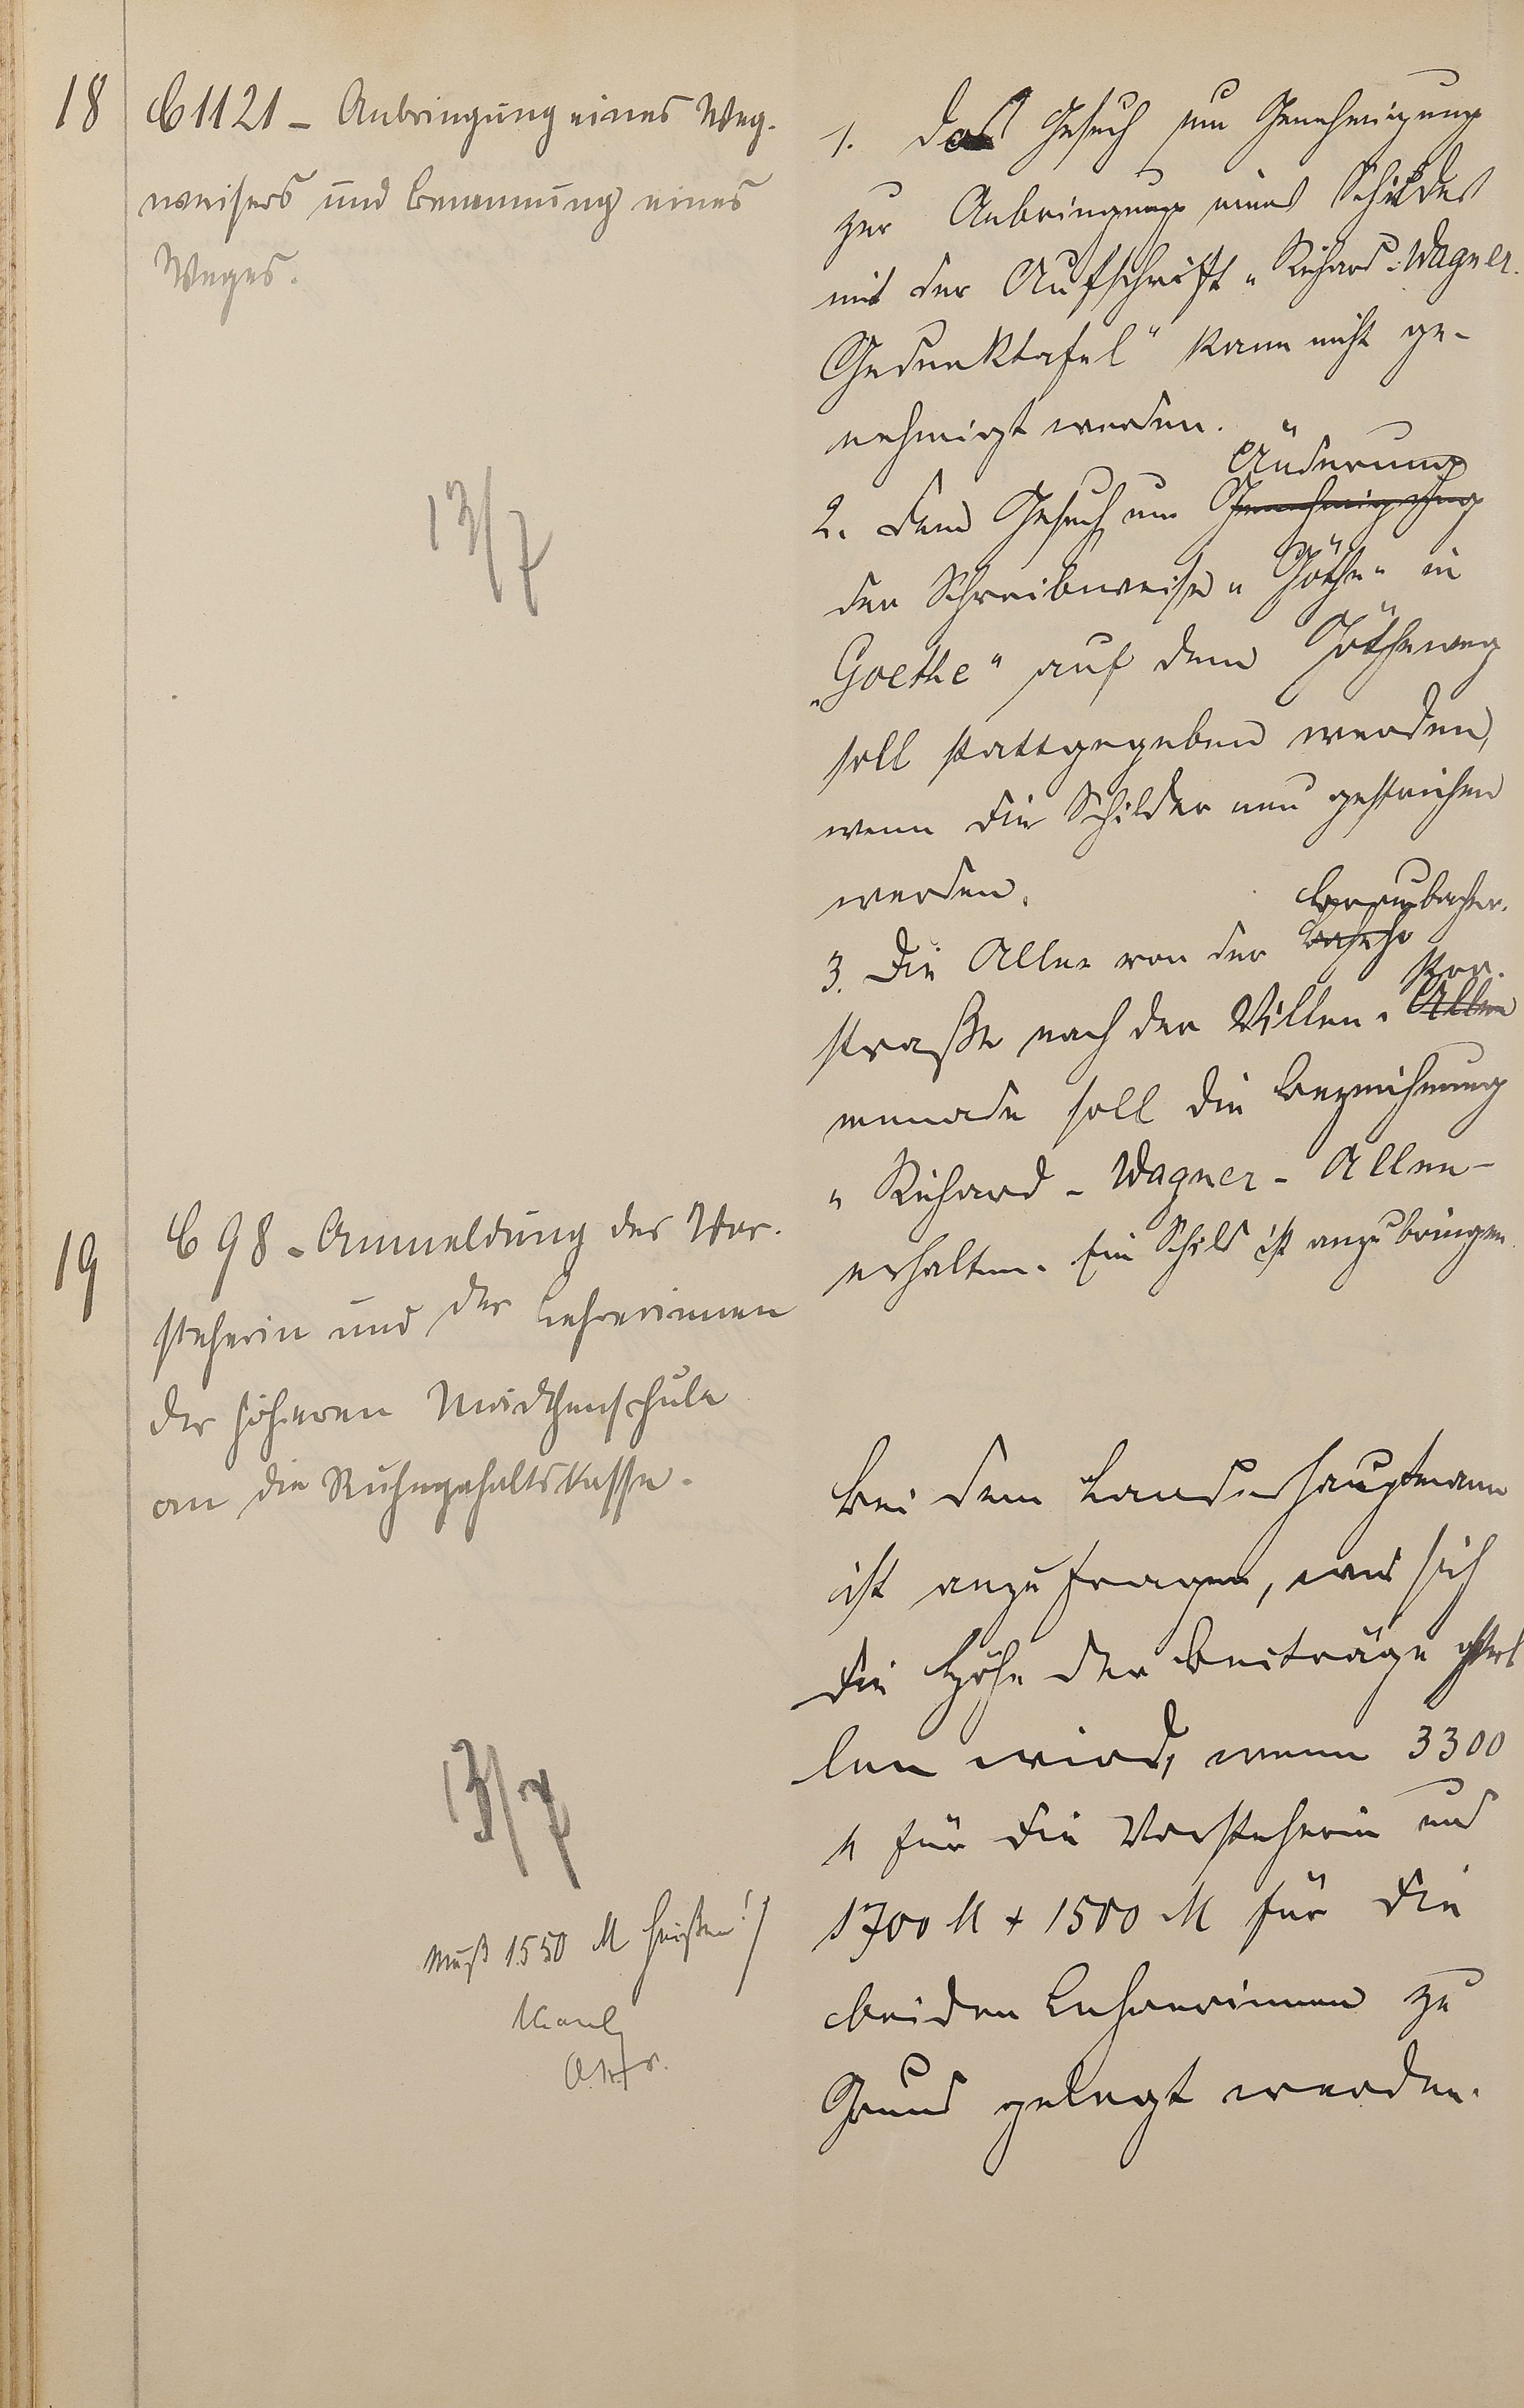 18
C 1121 - Anbringung eines Weg-
weisers und Benennung eines
Weges.
13/7
1. Das Gesuch um Genehmigung
zur Anbringung eines Schildes
mit der Aufschrift "Richard-Wagner-
Gedenktafel" kann nicht ge-
nehmigt werden.
Änderung
2. Dem Gesuch um Genehmigung
der Schreibweise "Göthe" in
"Goethe" auf dem Götheweg
soll stattgegeben werden,
wenn die Schilder neu gestrichen
werden.
3. Die Allee von der
Pro-
straße nach der Villen- Allee
menade soll die Bezeichnung
"Richard-Wagner-Allee-
erhalten. Ein Schild ist anzubringen
19
C 98 - Anmeldung der Vor-
steherin und der Lehrerinnen
der höheren Mädchenschule
an die Ruhegehaltskasse.
13/7
muß 1550 M heißen!
Bei dem Landeshauptmann
ist anzufragen, wie sich
die Höhe der Beiträge stel
len wird, wenn 3300
M für die Vorsteherin und
1700 M + 1500 M für die
beiden Lehrerinnen zu
Grund gelegt werden.